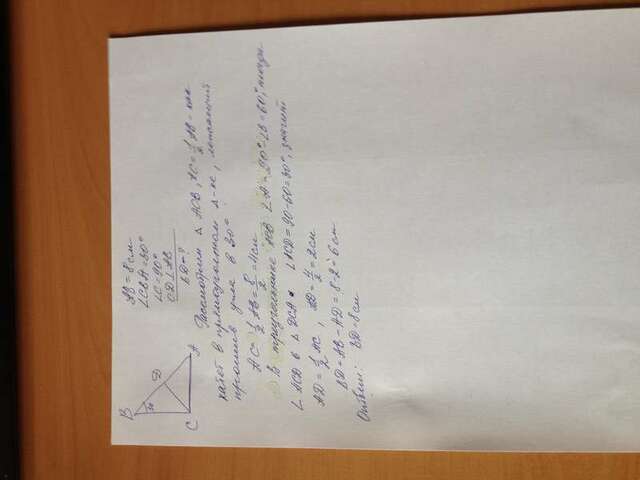 B
D
30
C
A
AB = 8 см
∠CBA = 30°
∠C = 90°
CD ⊥ AB
BD - ?
Рассмотрим △ ACB, AC = 1/2 AB - как
катет в прямоугольном △-ке, лежащий
против угла в 30°
AC = 1/2 AB = 8/2 = 4 см
В треугольнике ∠A = 90° ∠B = 60°,
∠ACD в △ DCA ∠ACD = 90-60=30°, значит
AD = 1/2 AC, AD = 4/2 = 2 см
BD = AB - AD = 8-2 = 6 см
Ответ: BD =